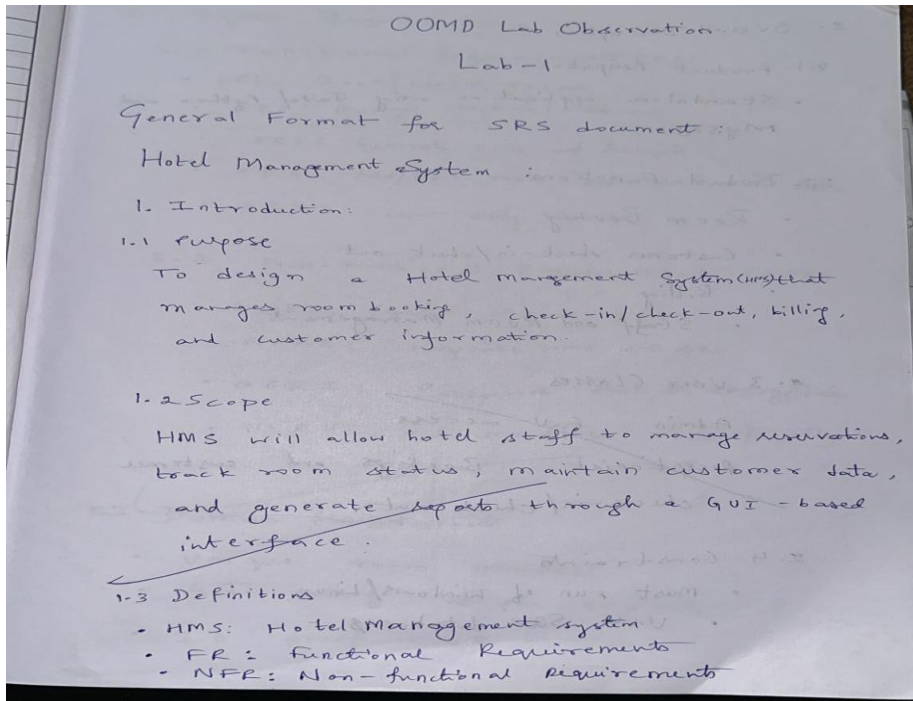 OOMD Lab Observation
Lab-1
General Format for SRS document:
Hotel Management System :
1. Introduction:
1.1 Purpose
To design a Hotel Management System (HMS) that
manages room booking, check-in/check-out, billing,
and customer information.
1.2 Scope
HMS will allow hotel staff to manage reservations,
track room status, maintain customer data,
and generate reports through a GUI-based
interface.
1.3 Definitions
• HMS: Hotel Management system
• FR: Functional Requirements
• NFR: Non-functional Requirements